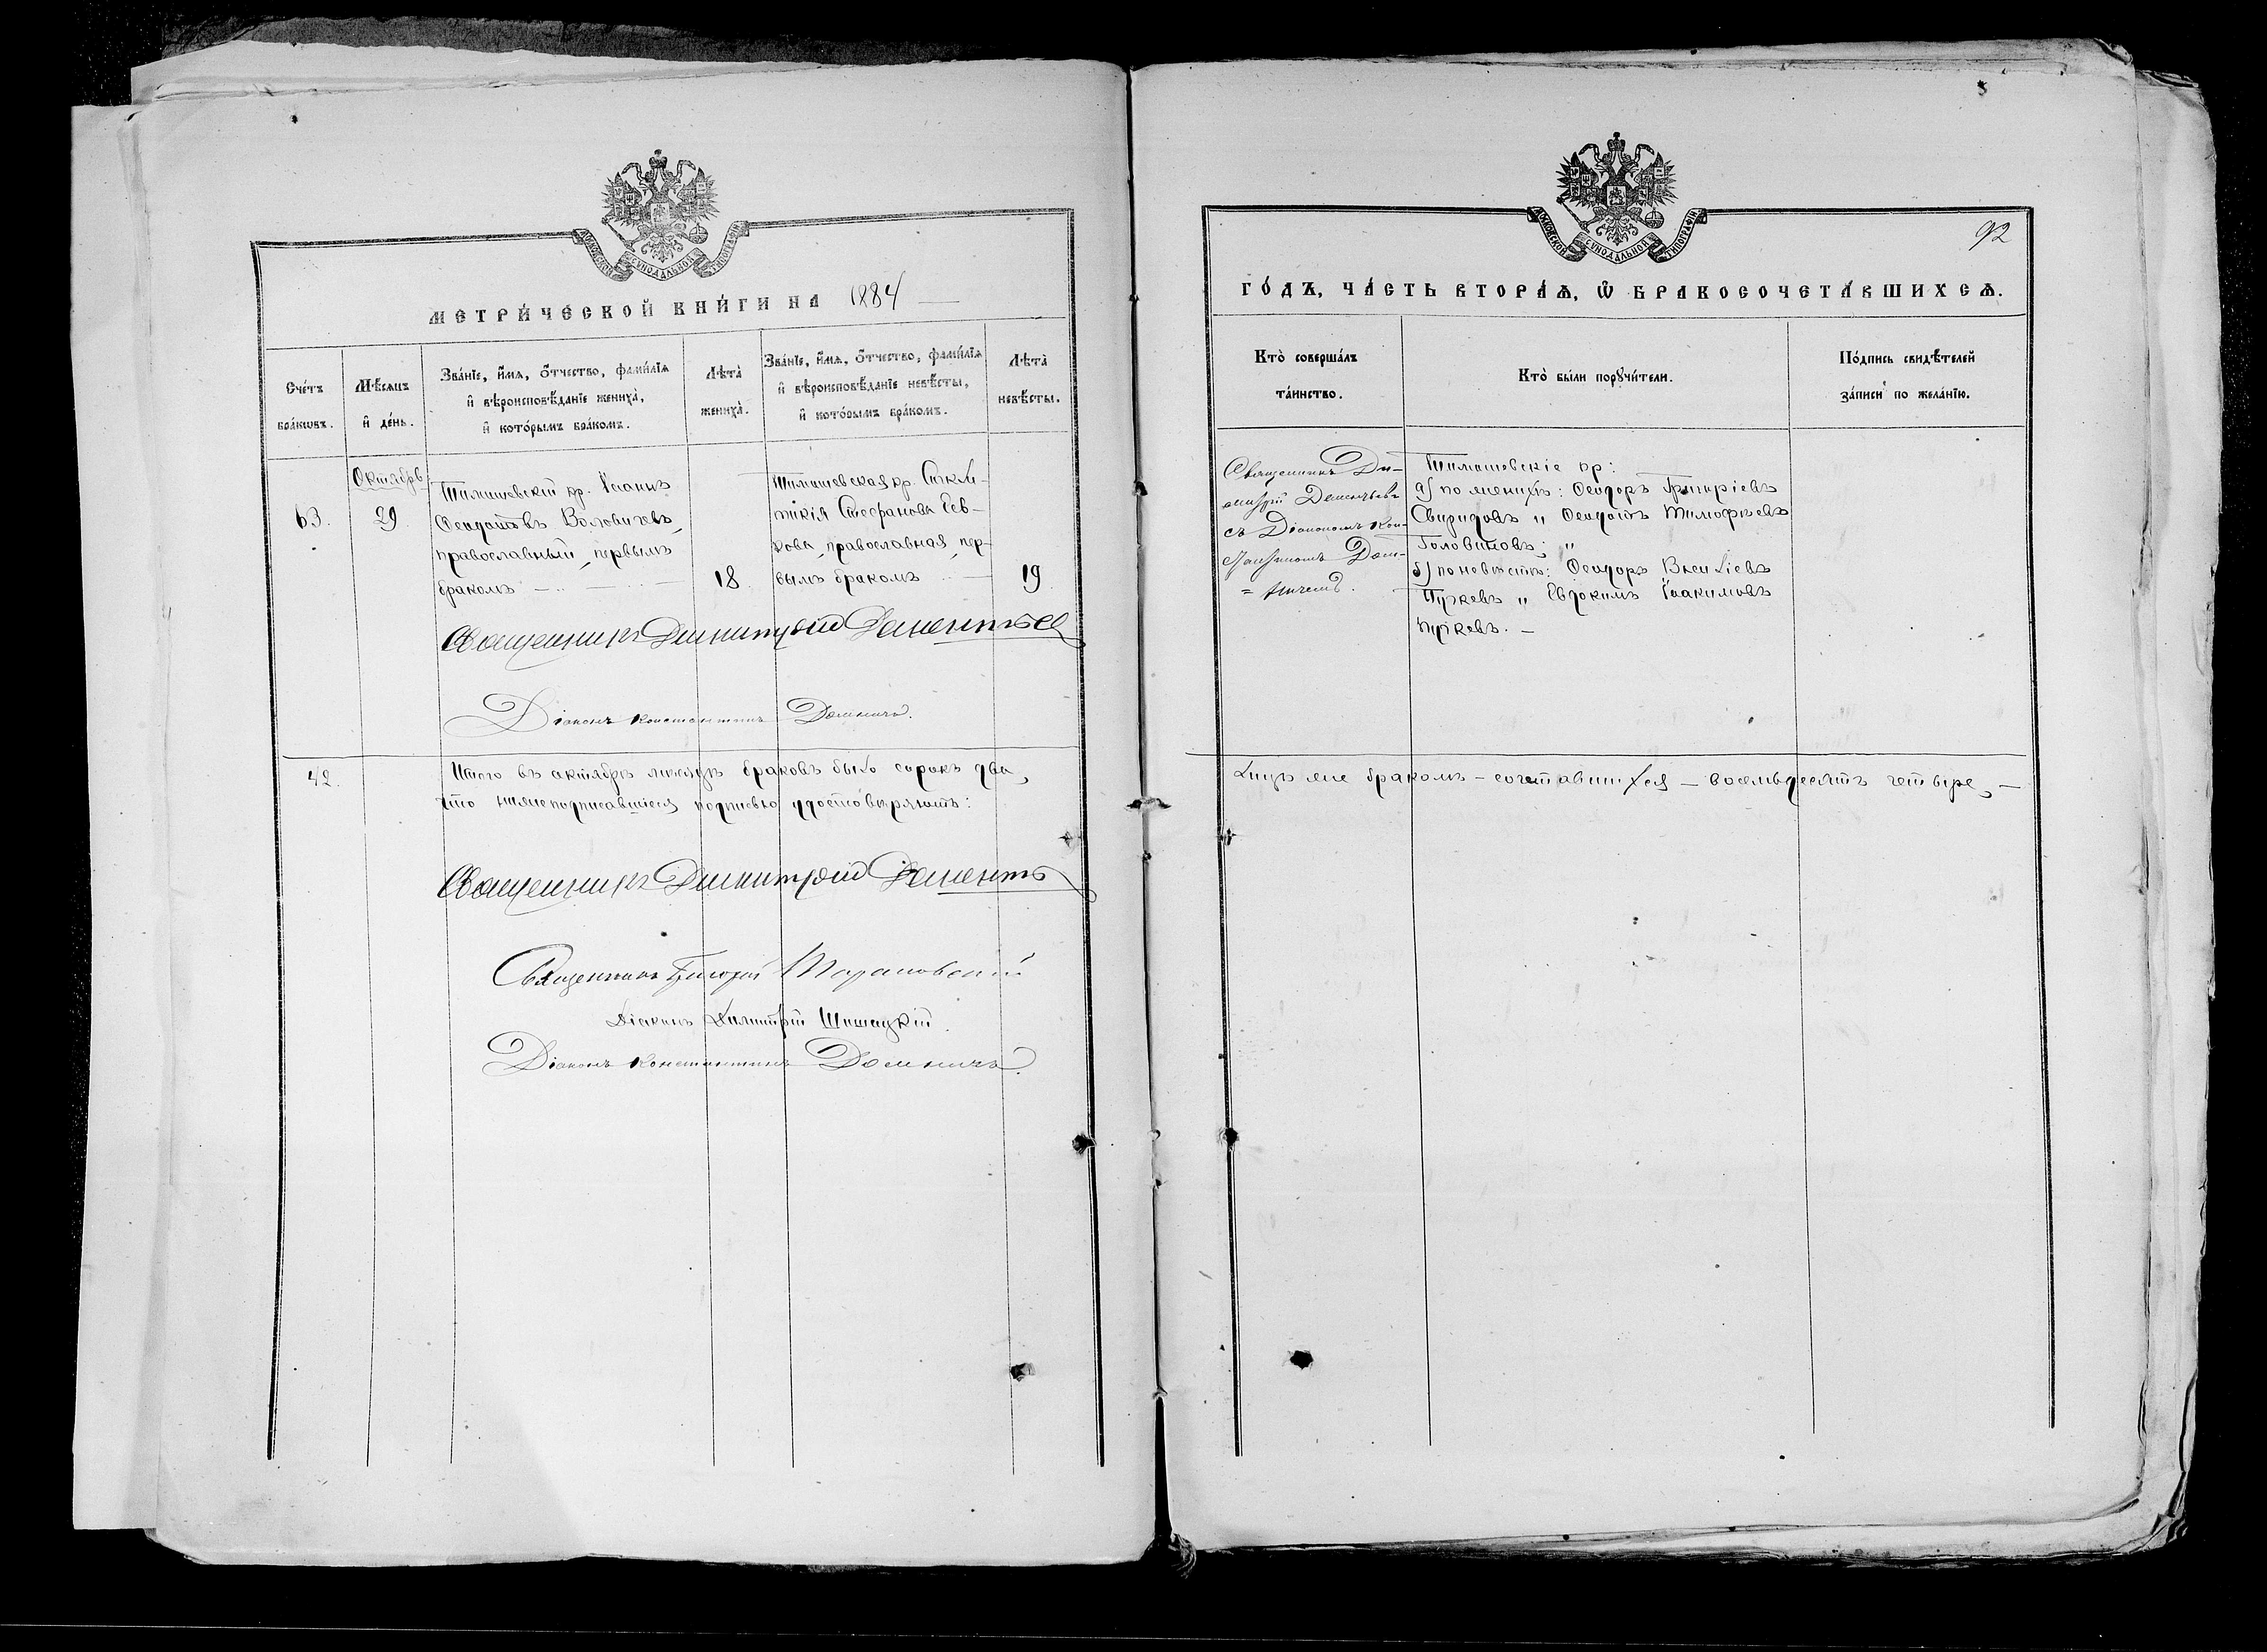 МОСКОВСКОЙ СѴНОДАЛЬНОЙ ТИПОГРАФІИ
МЕТРИ́ЧЕСКОЙ КНИ́ГИ НА 1884
Сче́тъ
бра́кѡвъ.
Мѣ́сяцъ
и҆ де́нь.
Зва́нїе, и҆́мѧ, ѻ҆́тчество, фами́лїѧ
и҆ вѣроисповѣ́данїе жениха̀,
и҆ кото́рымъ бра́комъ.
Лѣта̀
жениха̀.
Зва́нїе, и҆́мѧ, ѻ҆́тчество, фами́лїѧ
и҆ вѣроисповѣ́данїе невѣ́сты,
и҆ кото́рымъ бра́комъ.
Лѣта̀
невѣ́сты.
63.
Октябрь
29.
Тимашевскій кр. Іоаннъ
Ѳеодотовъ
православный, первымъ
бракомъ —
18.
Тимашевская кр. Синкли-
тикія Стефанова Рев-
кова, православная, пер-
вымъ бракомъ —
19.
Священникъ Димитрій Дементьев
Діаконъ Константинъ Домничъ.
42.
Итого въ октябрѣ мѣсяцѣ браковъ было сорокъ два,
что нижеподписавшіеся подписью удостовѣряютъ:
Священникъ Димитрій Дементь
Священникъ Григорій
Діаконъ Димитрій Шишацкій.
Діаконъ Константинъ Домничъ.
МОСКОВСКОЙ СѴНОДАЛЬНОЙ ТИПОГРАФІИ
92
ГО́ДЪ, ЧА́СТЬ ВТОРА́Ѧ, Ѡ҆ БРАКОСОЧЕТА́ВШИХСѦ.
Кто̀ соверша́лъ
та́инство.
Кто̀ бы́ли порꙋчи́тели.
По́дпись свидѣ́телей
за́писи по жела́нїю.
Священникъ Ди-
митрій Дементьевъ
съ Діакономъ Кон-
стантиномъ Дом-
= ничемъ.
Тимашевскіе кр:
а) по женихѣ: Ѳеодоръ Григоріевъ
Свиридовъ „ Ѳеодотъ Тимофѣевъ
Головиновъ; „
б) по невѣстѣ: Ѳеодоръ Василіевъ
Пужевъ „ Евдокимъ Іоакимовъ
Пужевъ. —
Лицъ же бракомъ – сочетавшихся – восемьдесятъ четыре, –